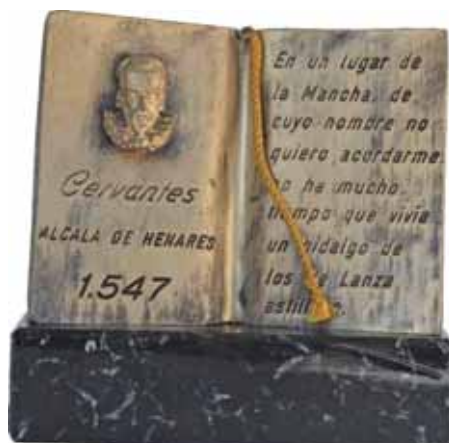 Cervantes
ALCALA DE HENARES
1.547
En un lugar de
la Mancha, de
cuyo nombre no
quiero acordarme
no ha mucho,
tiempo que vivía
un hidalgo de
los de Lanza